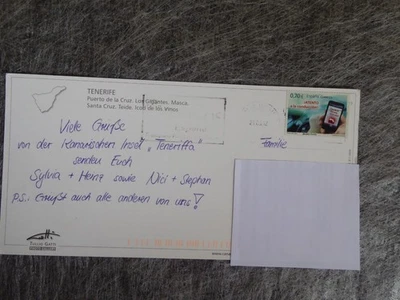 TENERIFE
Puerto de la Cruz. Los Gigantes. Masca.
Santa Cruz. Teide. Icod de los Vinos
0,70 €
Viele Grüße
von der Kanarischen Insel „Teneriffa"
senden Euch
Sylvia + Heinz sowie Nici + Stephan
p.s.: Grüßt auch alle anderen von uns!
Familie